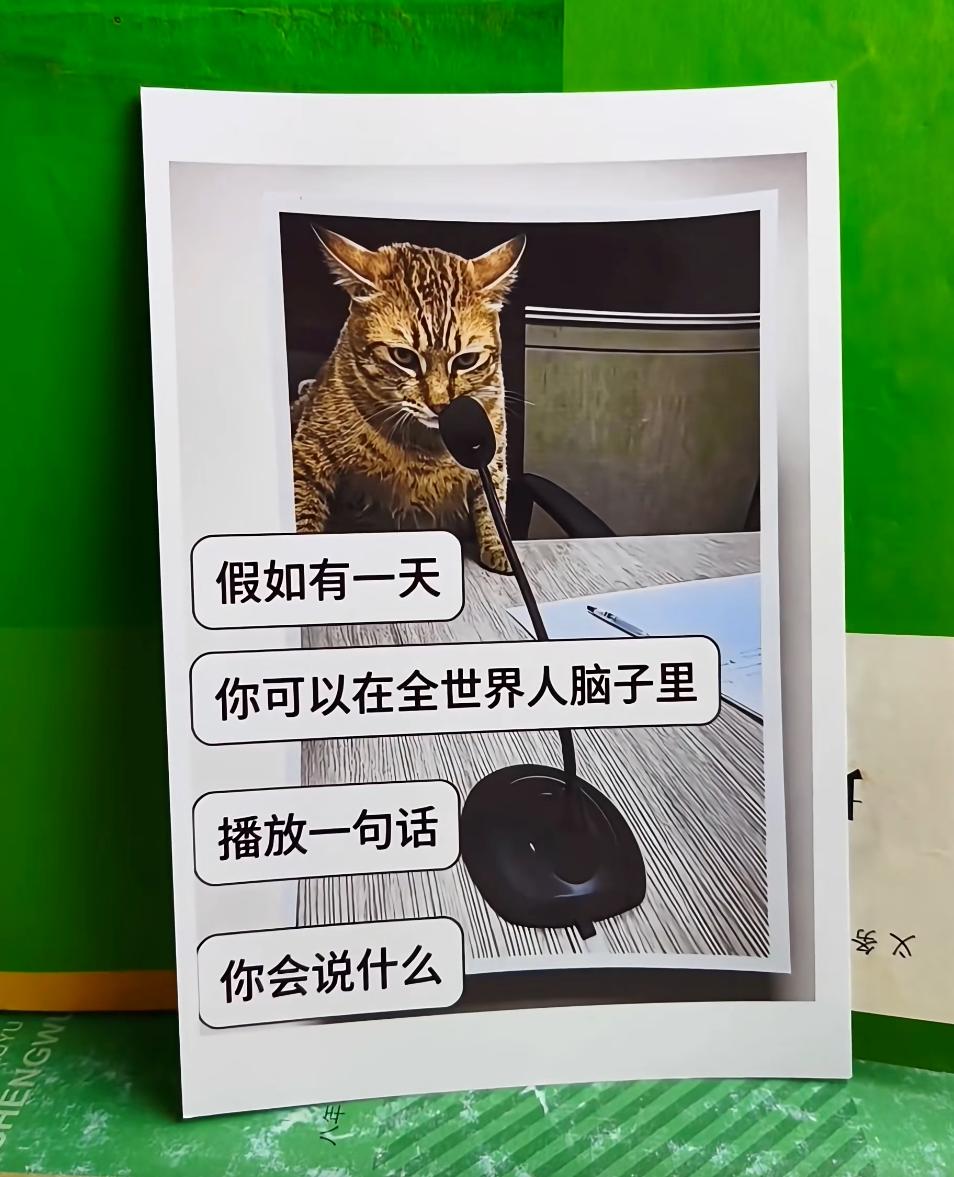 假如有一天
你可以在全世界人脑子里
播放一句话
你会说什么
义务